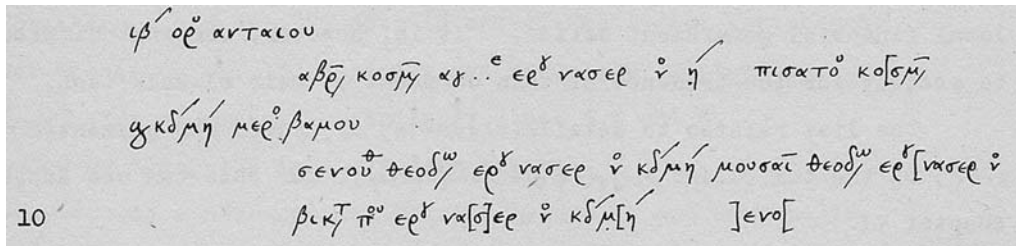 ιβ΄ ορ^ο ανταιου
αβρ̄/ κοσμ̄/ αγ..ε ερ^γ νασερ ν^ο η΄ πισατο^υ κο[σμ̄/
κδ΄ μ΄ η΄ μερ^ο βαμου
σενου^θ θεοδ/^ω ερ^γ νασερ ν^ο κδ΄ μ΄ η΄ μουσαῑ θεοδ/^ω ερ^γ [νασερ ν^ο
10 βικ/^τ π^ου ερ^γ να[σ]ερ ν^ο κδ΄ μ΄ [η΄ ]ενο[